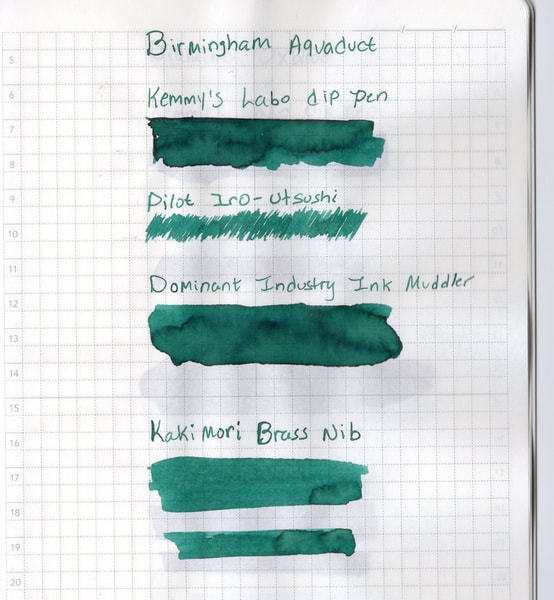 Birmingham Aquaduct
5
6
Kemmy's Labo dip pen
7
8
9
Pilot Iro-Utsushi
10
11
Dominant Industry Ink Muddler
12
13
14
15
16
Kakimori Brass Nib
17
18
19
20